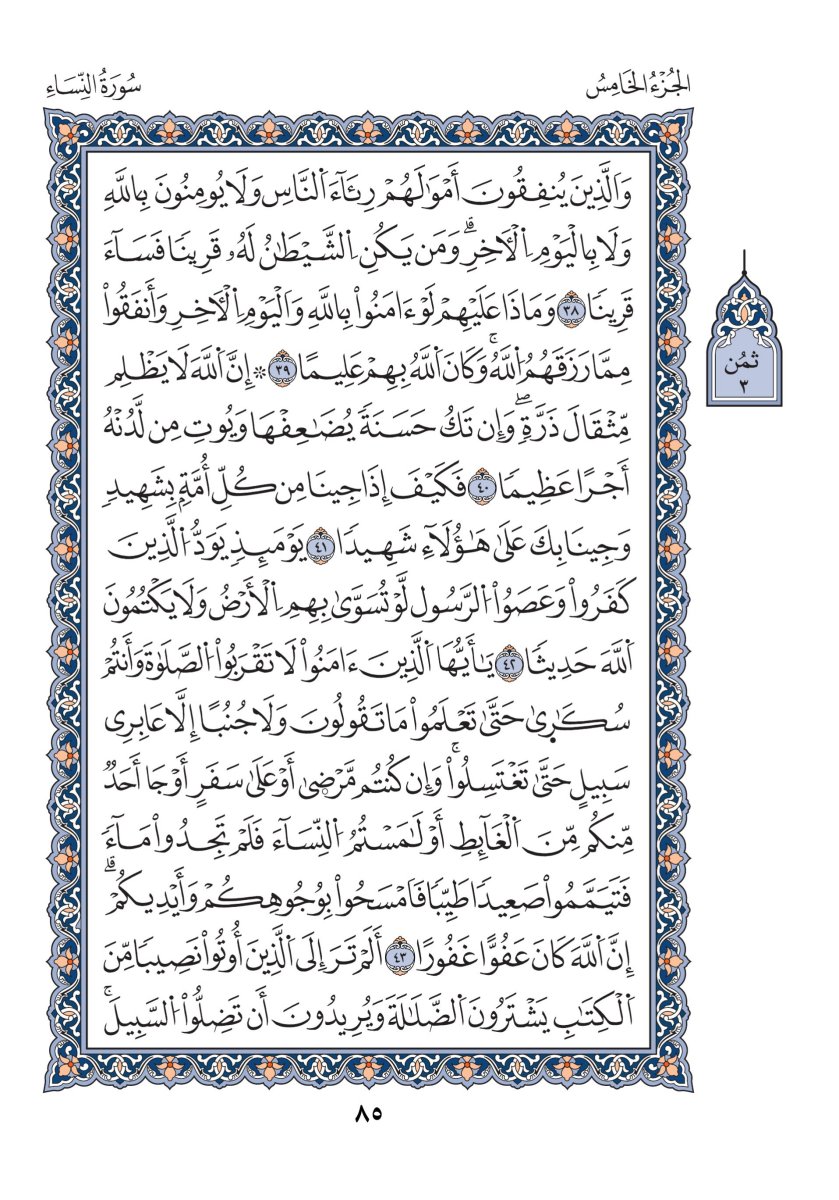 الْجُزْءُ الْخَامِسُ
سُورَةُ النِّسَاءِ
وَالَّذِينَ يُنفِقُونَ أَمْوَٰلَهُمْ رِئَآءَ اَلنَّاسِ وَلَا يُومِنُونَ بِاللَّهِ
وَلَا بِالْيَوْمِ اِلْأَخِرِۗ وَمَن يَكُنِ اِلشَّيْطَٰنُ لَهُۥ قَرِينٗا فَسَآءَ
قَرِينٗا ٣٨ وَمَاذَا عَلَيْهِمْ لَوْ ءَامَنُواْ بِاللَّهِ وَالْيَوْمِ اِلْأَخِرِ وَأَنفَقُواْ
مِمَّا رَزَقَهُمُ اُللَّهُۚ وَكَانَ اَللَّهُ بِهِمْ عَلِيمًا ٣٩ ۞ إِنَّ اَللَّهَ لَا يَظْلِم
مِّثْقَالَ ذَرَّةٖۖ وَإِن تَكُ حَسَنَةٗ يُضَٰعِفْهَا وَيُوتِ مِن لَّدُنْهُ
أَجْرًا عَظِيمٗا ٤٠ فَكَيْفَ إِذَا جِينَا مِن كُلِّ أُمَّةِۭ بِشَهِيدٖ
وَجِينَا بِكَ عَلَىٰ هَٰؤُلَآءِ شَهِيدٗا ٤١ يَوْمَئِذٖ يَوَدُّ اُلَّذِينَ
كَفَرُواْ وَعَصَوُاْ اُلرَّسُول لَّوْ تُسَوَّىٰ بِهِمِ اِلْأَرْضُ وَلَا يَكْتُمُونَ
اَللَّهَ حَدِيثٗا ٤٢ يَٰأَيُّهَا اَلَّذِينَ ءَامَنُواْ لَا تَقْرَبُواْ اُلصَّلَوٰةَ وَأَنتُمْ
سُكَٰرِىٰ حَتَّىٰ تَعْلَمُواْ مَا تَقُولُونَ وَلَا جُنُبًا إِلَّا عَابِرِى
سَبِيلٍ حَتَّىٰ تَغْتَسِلُواْۚ وَإِن كُنتُم مَّرْضِىٰ أَوْ عَلَىٰ سَفَرٍ أَوْ جَا أَحَدٞ
مِّنكُم مِّنَ اَلْغَآئِطِ أَوْ لَٰمَسْتُمُ اُلنِّسَآءَ فَلَمْ تَجِدُواْ مَآءٗ
فَتَيَمَّمُواْ صَعِيدٗا طَيِّبٗا فَامْسَحُواْ بِوُجُوهِكُمْ وَأَيْدِيكُمْۗ
إِنَّ اَللَّهَ كَانَ عَفُوًّا غَفُورًا ٤٣ أَلَمْ تَرَ إِلَى اَلَّذِينَ أُوتُواْ نَصِيبٗا مِّنَ
اَلْكِتَٰبِ يَشْتَرُونَ اَلضَّلَٰلَةَ وَيُرِيدُونَ أَن تَضِلُّواْ اُلسَّبِيلَۚ
ثُمُن
٣
٨٥